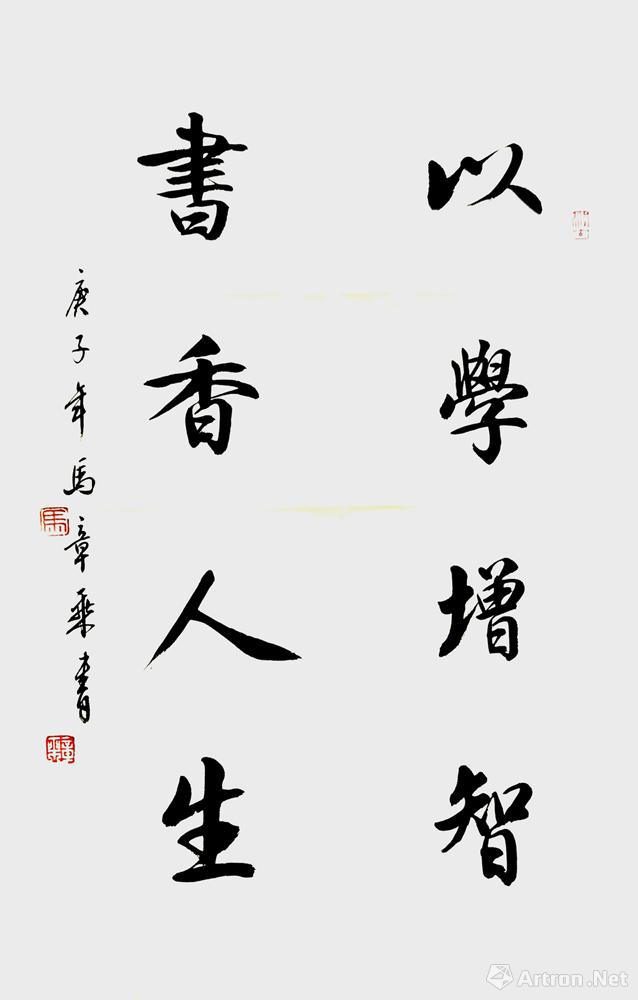 以學增智
書香人生
庚子年馬章乘書
馬
Artron.Net